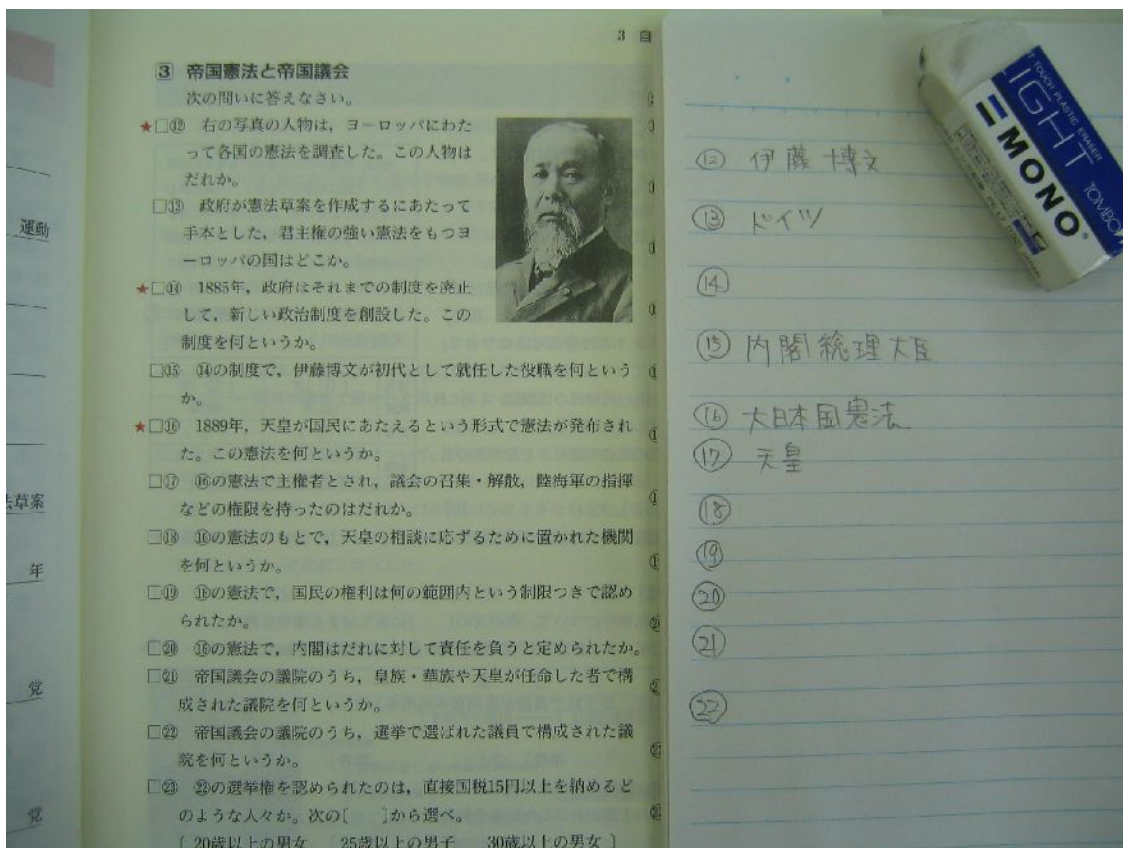 運動
法草案
年
党
党
3 自
3 帝国憲法と帝国議会
次の問いに答えなさい。
★□⑫ 右の写真の人物は，ヨーロッパにわた
って各国の憲法を調査した。この人物は
だれか。
□⑬ 政府が憲法草案を作成するにあたって
手本とした，君主権の強い憲法をもつヨ
ーロッパの国はどこか。
★□⑭ 1885年，政府はそれまでの制度を廃止
して，新しい政治制度を創設した。この
制度を何というか。
□⑮ ⑭の制度で，伊藤博文が初代として就任した役職を何という
か。
★□⑯ 1889年，天皇が国民にあたえるという形式で憲法が発布され
た。この憲法を何というか。
□⑰ ⑯の憲法で主権者とされ，議会の召集・解散，陸海軍の指揮
などの権限を持ったのはだれか。
□⑱ ⑯の憲法のもとで，天皇の相談に応ずるために置かれた機関
を何というか。
□⑲ ⑯の憲法で，国民の権利は何の範囲内という制限つきで認め
られたか。
□⑳ ⑯の憲法で，内閣はだれに対して責任を負うと定められたか。
□㉑ 帝国議会の議院のうち，皇族・華族や天皇が任命した者で構
成された議院を何というか。
□㉒ 帝国議会の議院のうち，選挙で選ばれた議員で構成された議
院を何というか。
□㉓ ㉒の選挙権を認められたのは，直接国税15円以上を納めるど
のような人々か。次の［　］から選べ。
［ 20歳以上の男女　25歳以上の男子　30歳以上の男女 ］
⑫ 伊藤博文
⑬ ドイツ
⑭
⑮ 内閣総理大臣
⑯ 大日本国憲法
⑰ 天皇
⑱
⑲
⑳
㉑
㉒
TOUCH PLASTIC ERASER
LIGHT TOMBOW
MONO